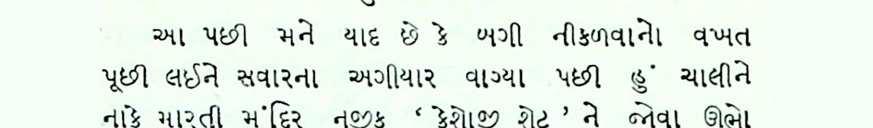 આ પછી મને યાદ છે કે બગી નીકળવાનો વખત
પૂછી લઈને સવારના અગીયાર વાગ્યા પછી હું ચાલીને
નાકે મારુતી મંદિર નજીક ‘કેશોજી શેટ’ ને જોવા ઊભો